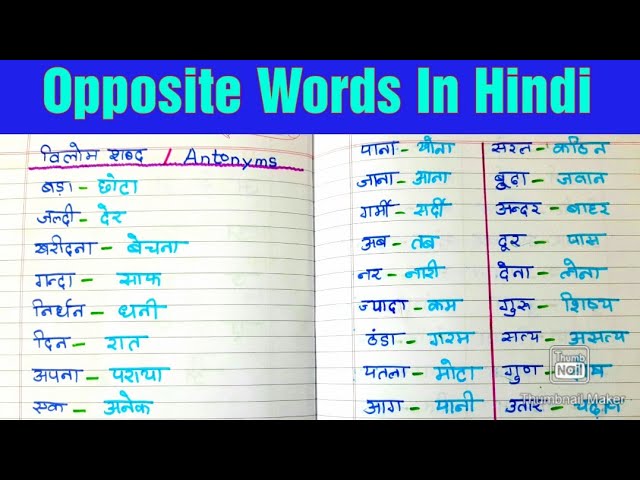 Opposite Words In Hindi
विलोम शब्द / Antonyms
बड़ा – छोटा
जल्दी – देर
खरीदना – बेचना
गन्दा – साफ
निर्धन – धनी
दिन – रात
अपना – पराया
एक – अनेक
पाना – खोना
जाना – आना
गर्मी – सर्दी
अब – तब
नर – नारी
ज्यादा – कम
ठंडा – गरम
पतला – मोटा
आग – पानी
सरल – कठिन
बूढ़ा – जवान
अन्दर – बाहर
दूर – पास
देना – लेना
गुरु – शिष्य
सत्य – असत्य
गुण –
उतार –
Thumb
Nail
Thumbnail Maker